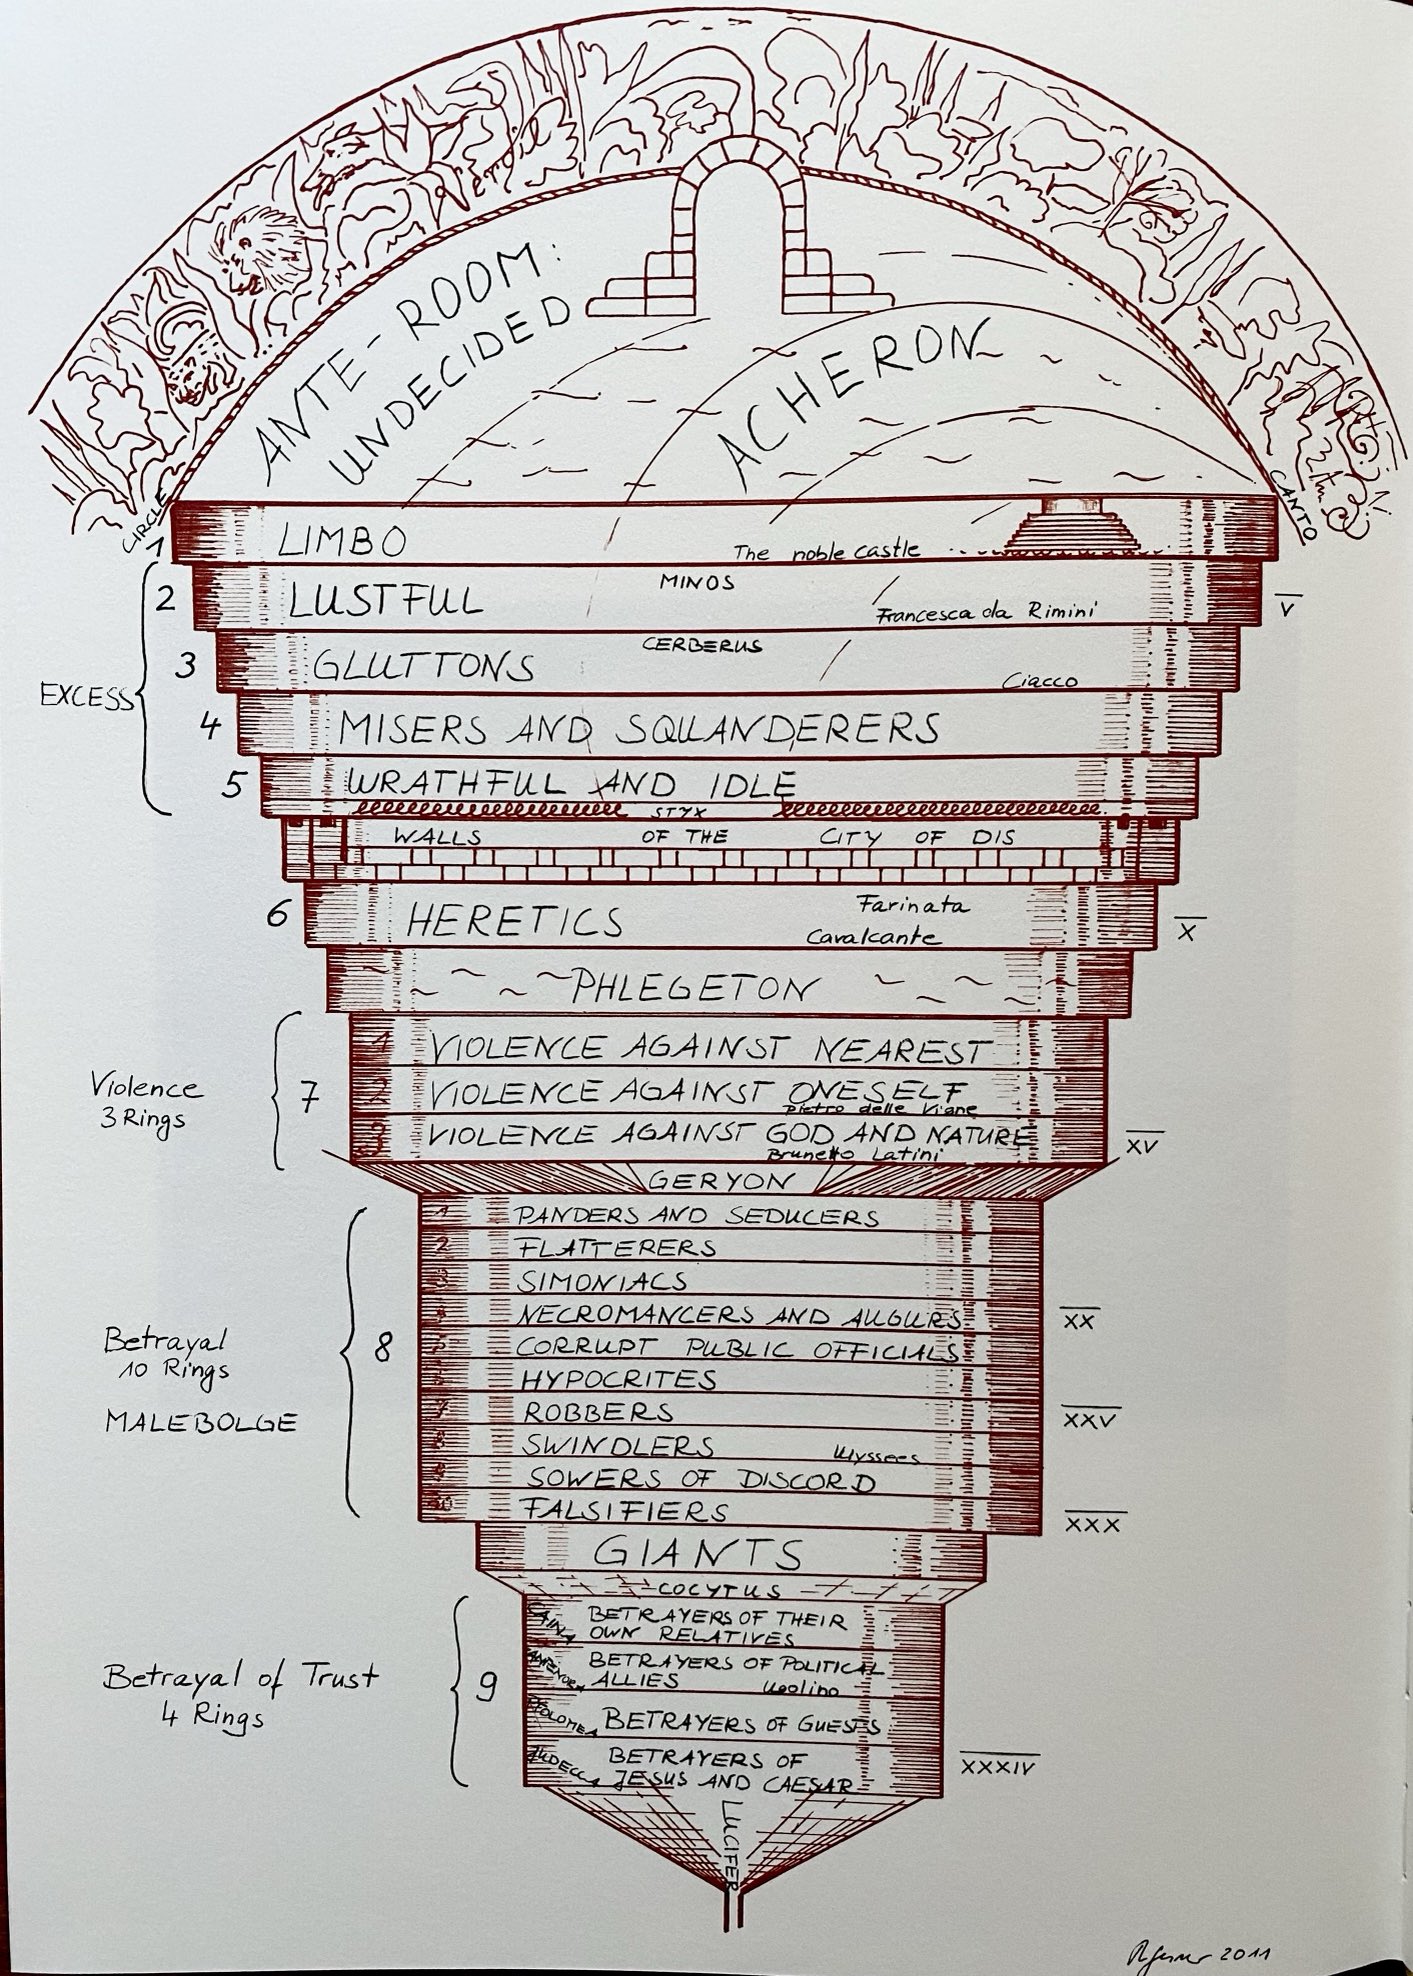 Vergil
ANTE-ROOM:
UNDECIDED
ACHERON
CIRCLE
CANTO
1 LIMBO
The noble castle
MINOS
2 LUSTFUL
Francesca da Rimini
V
CERBERUS
3 GLUTTONS
Ciacco
EXCESS
4 MISERS AND SQUANDERERS
5 WRATHFUL AND IDLE
STYX
WALLS OF THE CITY OF DIS
6 HERETICS
Farinata
Cavalcante
X
PHLEGETON
Violence
3 Rings
7
1 VIOLENCE AGAINST NEAREST
2 VIOLENCE AGAINST ONESELF
Pietro delle Vigne
3 VIOLENCE AGAINST GOD AND NATURE
Brunetto Latini
XV
GERYON
Betrayal
10 Rings
MALEBOLGE
8
1 PANDERS AND SEDUCERS
2 FLATTERERS
3 SIMONIACS
4 NECROMANCERS AND AUGURS
XX
5 CORRUPT PUBLIC OFFICIALS
6 HYPOCRITES
7 ROBBERS
XXV
8 SWINDLERS Ulyssees
9 SOWERS OF DISCORD
10 FALSIFIERS
XXX
GIANTS
COCYTUS
Betrayal of Trust
4 Rings
9
CAINA
BETRAYERS OF THEIR
OWN RELATIVES
ANTENORA
BETRAYERS OF POLITICAL
ALLIES Ugolino
PTOLOMEA
BETRAYERS OF GUESTS
JUDECCA
BETRAYERS OF
JESUS AND CAESAR
XXXIV
LUCIFER
2011